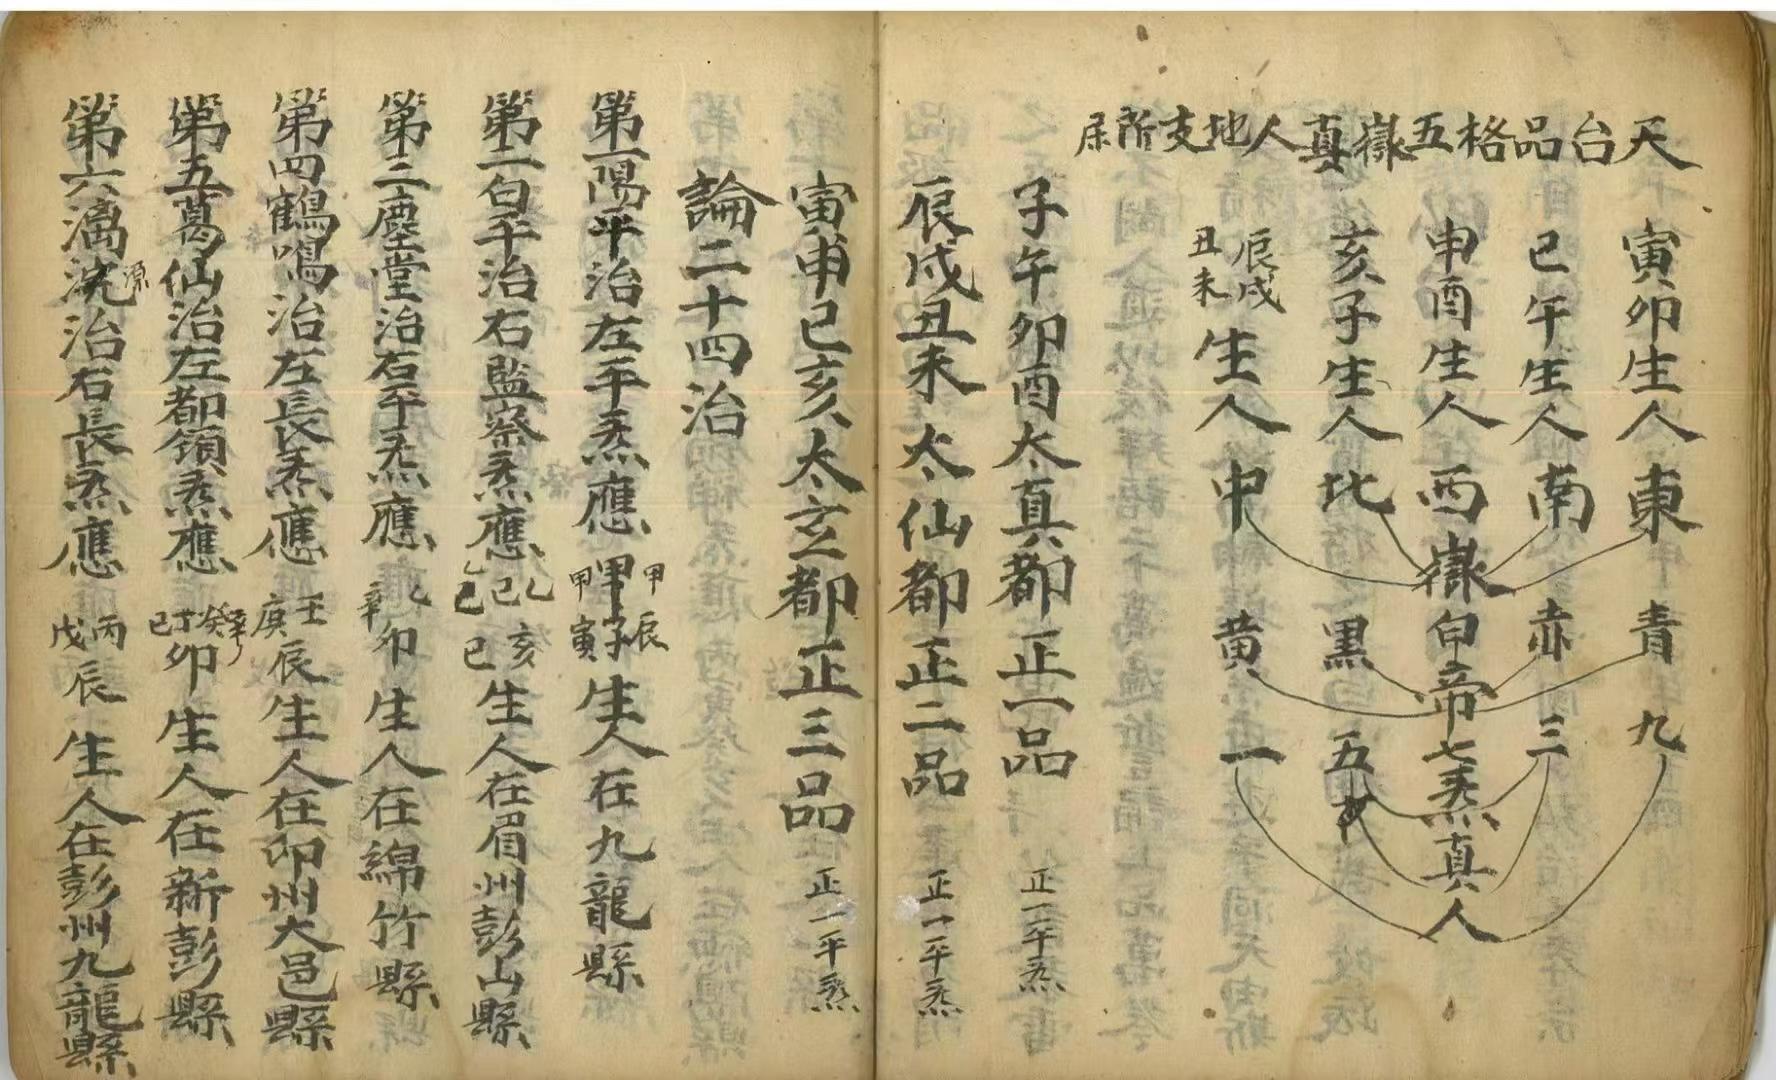 天台品格五嶽真人地支所屬
寅卯生人東　青　九
巳午生人南　赤　三
申酉生人西嶽白帝七炁真人
亥子生人北　黑　五
辰戌丑未生人中　黃　一
子午卯酉太真都正一品　正一平炁
辰戌丑未太仙都正二品　正一平炁
寅申巳亥太玄都正三品　正一平炁
論二十四治
第一陽平治左平炁應甲子甲辰甲寅生人在九龍縣
第二白干治右監察炁應乙巳乙亥己巳生人在眉州彭山縣
第三塵堂治右平炁應乙辛卯生人在綿竹縣
第四鶴鳴治左長炁應壬庚辰生人在卬州大邑縣
第五葛仙治左都領炁應辛癸丁己卯生人在新彭縣
第六漓沅源治右長炁應丙戊辰生人在彭州九龍縣